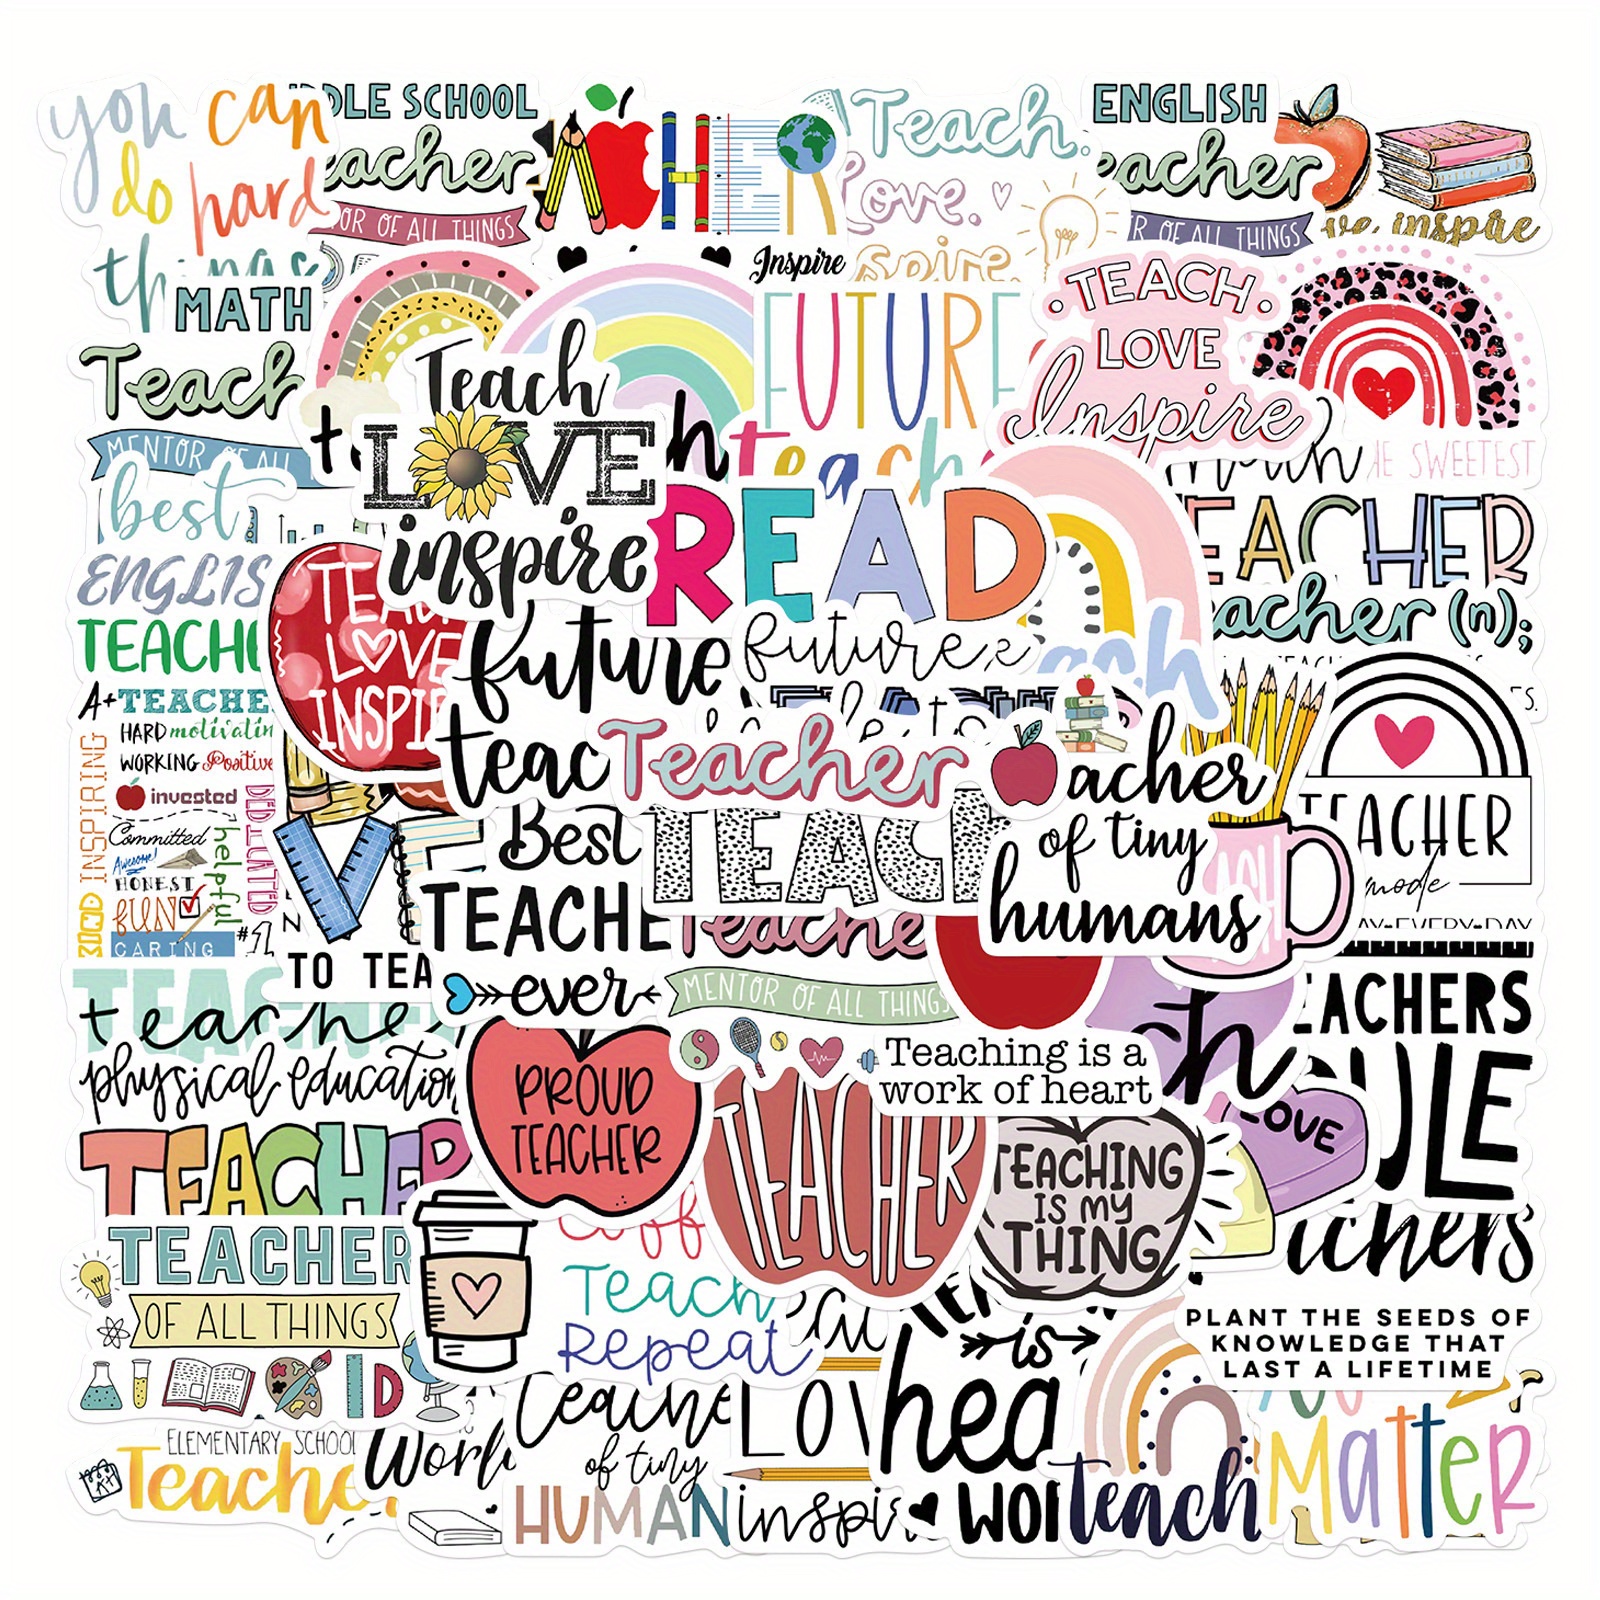 you can
do hard
things
MATH
Teach
MENTOR OF ALL
DLE SCHOOL
eacher
OR OF ALL THINGS
ACHER
Inspire
Teach.
Love.
spire
ENGLISH
eacher
R OF ALL THINGS
ve, inspire
FUTURE
teach
TEACH
LOVE
Inspire
HE SWEETEST
Teach
LOVE
inspire
READ
best
ENGLIS
TEACHE
A+ TEACHE
HARD motivatin
WORKING Positive
invested
Committed
Awesome!
HONEST
FUN
CARING
KIND INSPIRING
helpful
DEDICATED
#1
TEACH
LOVE
INSPIRE
future
teac
future
Teacher
EACHER
eacher (n);
TEACHER
mode
AY•EVERY•DAY
VE
TO TEA
Best
TEACHE
ever
TEACH
Teache
MENTOR OF ALL THINGS
eacher
of tiny
humans
TEACHER
teacher
physical education
TEACHER
PROUD
TEACHER
Teaching is a
work of heart
TEACHER
TEACHING
IS MY
THING
LOVE
EACHERS
ULE
TEACHER
OF ALL THINGS
ELEMENTARY SCHOOL
Teache
Teach
Repeat
teache
of tiny
HUMAN
LOV
inspir
is
hea
WOR
teach
PLANT THE SEEDS OF
KNOWLEDGE THAT
LAST A LIFETIME
Matter